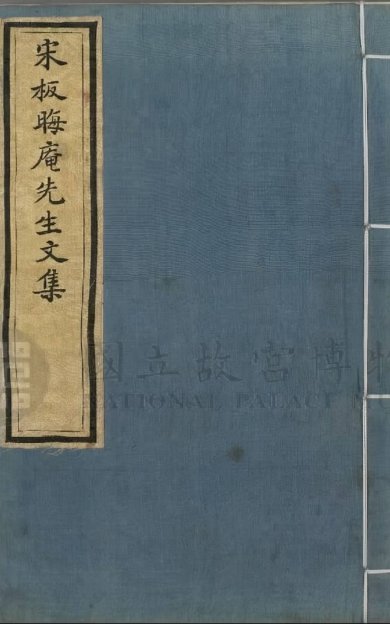 宋板晦庵先生文集
國立故宮博物
NATIONAL PALACE M